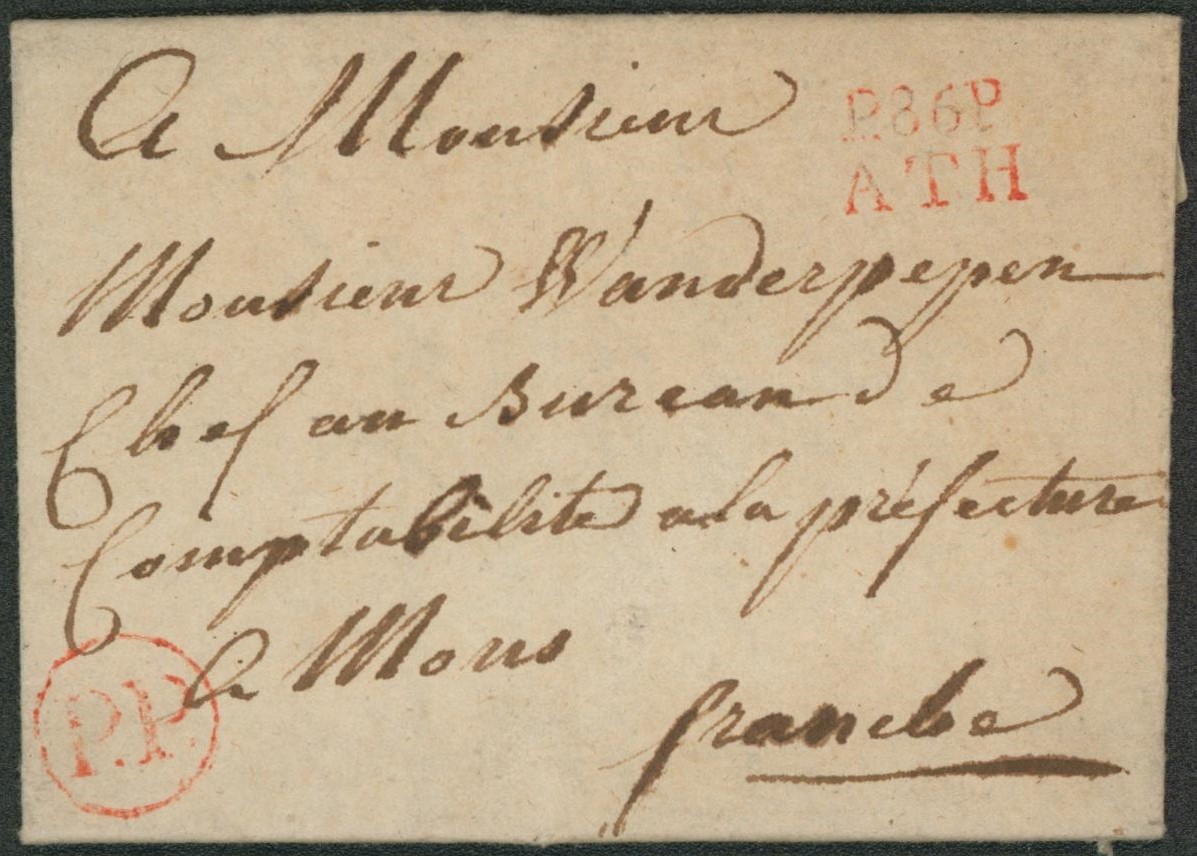 A Monsieur
P.86P.
ATH
Monsieur Vanderpepen
Chef au Bureau de
Comptabilité a la préfecture
a Mons
P.P.
franche